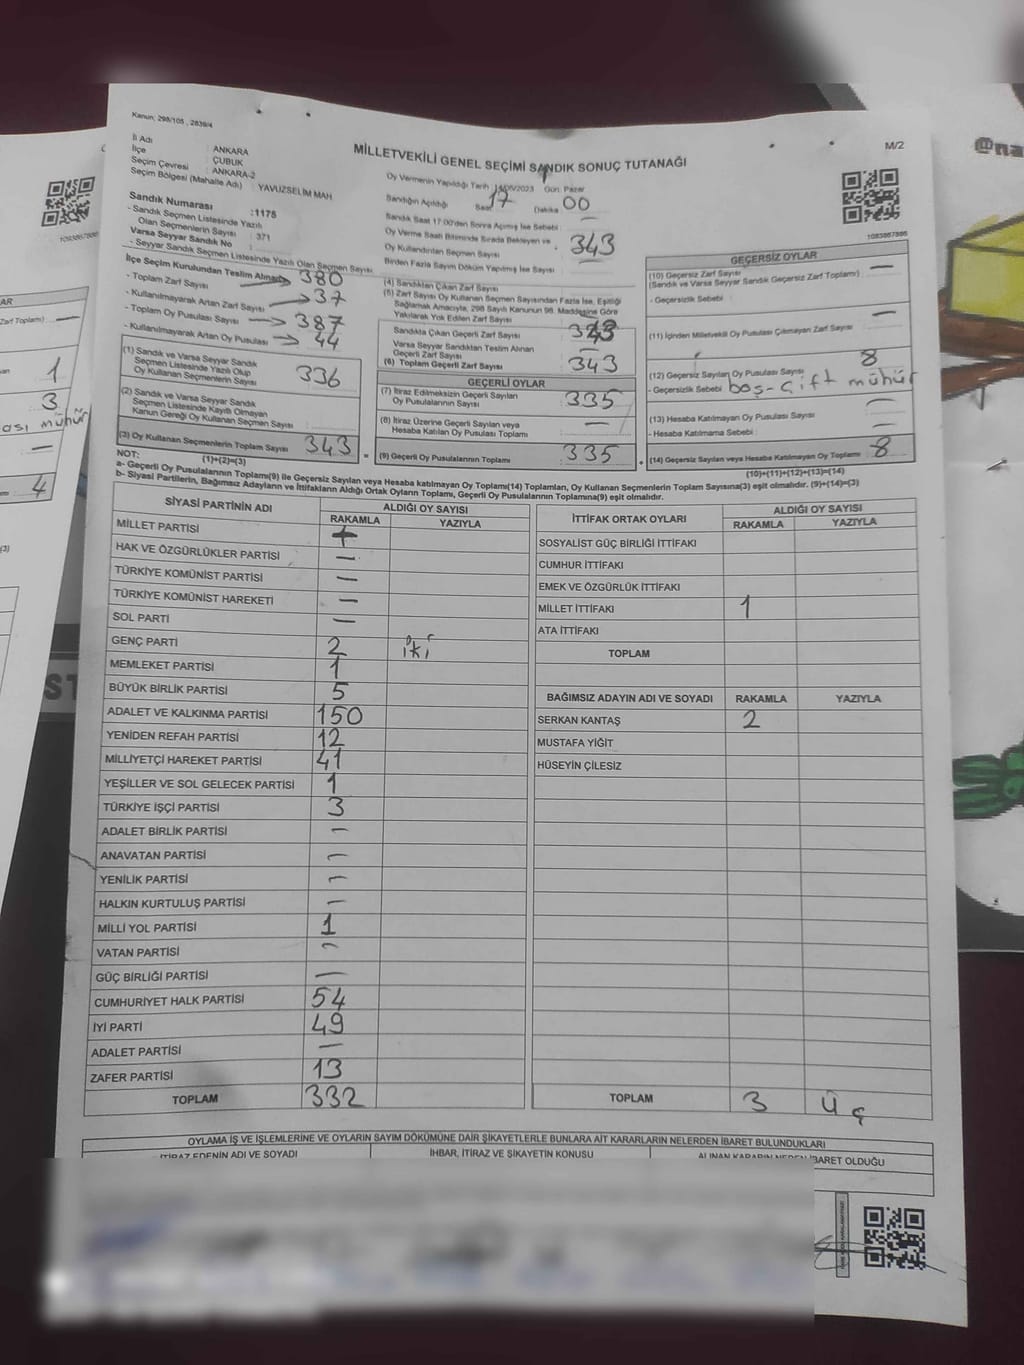 Kanun: 298/105 , 2839/4
M/2
MİLLETVEKİLİ GENEL SEÇİMİ SANDIK SONUÇ TUTANAĞI
@na
İl Adı : ANKARA
İlçe : ÇUBUK
Seçim Çevresi : ANKARA-2
Seçim Bölgesi (Mahalle Adı) : YAVUZSELİM MAH
Sandık Numarası :1175
- Sandık Seçmen Listesinde Yazılı
Olan Seçmenlerin Sayısı : 371
Varsa Seyyar Sandık No :
- Seyyar Sandık Seçmen Listesinde Yazılı Olan Seçmen Sayısı
İlçe Seçim Kurulundan Teslim Alınan
- Toplam Zarf Sayısı 380
- Kullanılmayarak Artan Zarf Sayısı 37
- Toplam Oy Pusulası Sayısı 387
- Kullanılmayarak Artan Oy Pusulası 44
(1) Sandık ve Varsa Seyyar Sandık
Seçmen Listesinde Yazılı Olup
Oy Kullanan Seçmenlerin Sayısı 336
(2) Sandık ve Varsa Seyyar Sandık
Seçmen Listesinde Kayıtlı Olmayan
Kanun Gereği Oy Kullanan Seçmen Sayısı
(3) Oy Kullanan Seçmenlerin Toplam Sayısı 343
(1)+(2)=(3)
Oy Vermenin Yapıldığı Tarih 14/05/2023 Gün: Pazar
Sandığın Açıldığı Saat 17 Dakika 00
Sandık Saat 17:00'den Sonra Açılmış İse Sebebi :
Oy Verme Saati Bitiminde Sırada Bekleyen ve
Oy Kullandırılan Seçmen Sayısı
343
Birden Fazla Sayım Döküm Yapılmış İse Sayısı
(4) Sandıktan Çıkan Zarf Sayısı
(5) Zarf Sayısı Oy Kullanan Seçmen Sayısından Fazla İse, Eşitliği
Sağlamak Amacıyla, 298 Sayılı Kanunun 98. Maddesine Göre
Yakılarak Yok Edilen Zarf Sayısı
Sandıkta Çıkan Geçerli Zarf Sayısı 343
Varsa Seyyar Sandıktan Teslim Alınan
Geçerli Zarf Sayısı
(6) Toplam Geçerli Zarf Sayısı 343
GEÇERLİ OYLAR
(7) İtiraz Edilmeksizin Geçerli Sayılan
Oy Pusulalarının Sayısı 335
(8) İtiraz Üzerine Geçerli Sayılan veya
Hesaba Katılan Oy Pusulası Toplamı —
(9) Geçerli Oy Pusulalarının Toplamı 335
1093867886
GEÇERSİZ OYLAR
(10) Geçersiz Zarf Sayısı —
(Sandık ve Varsa Seyyar Sandık Geçersiz Zarf Toplamı)
- Geçersizlik Sebebi :
(11) İçinden Milletvekili Oy Pusulası Çıkmayan Zarf Sayısı —
(12) Geçersiz Sayılan Oy Pusulası Sayısı 8
- Geçersizlik Sebebi boş-çift mühür
(13) Hesaba Katılmayan Oy Pusulası Sayısı —
- Hesaba Katılmama Sebebi : —
(14) Geçersiz Sayılan veya Hesaba Katılmayan Oy Toplamı 8
(10)+(11)+(12)+(13)=(14)
NOT:
a- Geçerli Oy Pusulalarının Toplamı(9) ile Geçersiz Sayılan veya Hesaba katılmayan Oy Toplamı(14) Toplamları, Oy Kullanan Seçmenlerin Toplam Sayısına(3) eşit olmalıdır. (9)+(14)=(3)
b- Siyasi Partilerin, Bağımsız Adayların ve İttifakların Aldığı Ortak Oyların Toplamı, Geçerli Oy Pusulalarının Toplamına(9) eşit olmalıdır.
SİYASİ PARTİNİN ADI ALDIĞI OY SAYISI
RAKAMLA YAZIYLA
MİLLET PARTİSİ
HAK VE ÖZGÜRLÜKLER PARTİSİ —
TÜRKİYE KOMÜNİST PARTİSİ —
TÜRKİYE KOMÜNİST HAREKETİ —
SOL PARTİ —
GENÇ PARTİ 2 iki
MEMLEKET PARTİSİ 1
BÜYÜK BİRLİK PARTİSİ 5
ADALET VE KALKINMA PARTİSİ 150
YENİDEN REFAH PARTİSİ 12
MİLLİYETÇİ HAREKET PARTİSİ 41
YEŞİLLER VE SOL GELECEK PARTİSİ 1
TÜRKİYE İŞÇİ PARTİSİ 3
ADALET BİRLİK PARTİSİ —
ANAVATAN PARTİSİ —
YENİLİK PARTİSİ —
HALKIN KURTULUŞ PARTİSİ —
MİLLİ YOL PARTİSİ 1
VATAN PARTİSİ —
GÜÇ BİRLİĞİ PARTİSİ —
CUMHURİYET HALK PARTİSİ 54
İYİ PARTİ 49
ADALET PARTİSİ —
ZAFER PARTİSİ 13
TOPLAM 332
İTTİFAK ORTAK OYLARI ALDIĞI OY SAYISI
RAKAMLA YAZIYLA
SOSYALİST GÜÇ BİRLİĞİ İTTİFAKI
CUMHUR İTTİFAKI
EMEK VE ÖZGÜRLÜK İTTİFAKI
MİLLET İTTİFAKI 1
ATA İTTİFAKI
TOPLAM
BAĞIMSIZ ADAYIN ADI VE SOYADI RAKAMLA YAZIYLA
SERKAN KANTAŞ 2
MUSTAFA YİĞİT
HÜSEYİN ÇİLESİZ
TOPLAM 3 üç
OYLAMA İŞ VE İŞLEMLERİNE VE OYLARIN SAYIM DÖKÜMÜNE DAİR ŞİKAYETLERLE BUNLARA AİT KARARLARIN NELERDEN İBARET BULUNDUKLARI
İTİRAZ EDENİN ADI VE SOYADI İHBAR, İTİRAZ VE ŞİKAYETİN KONUSU ALINAN KARARIN NEDEN İBARET OLDUĞU
1093867886
AR
Zarf Toplamı) —
1
3
ası mühür
—
4
(3)
ST